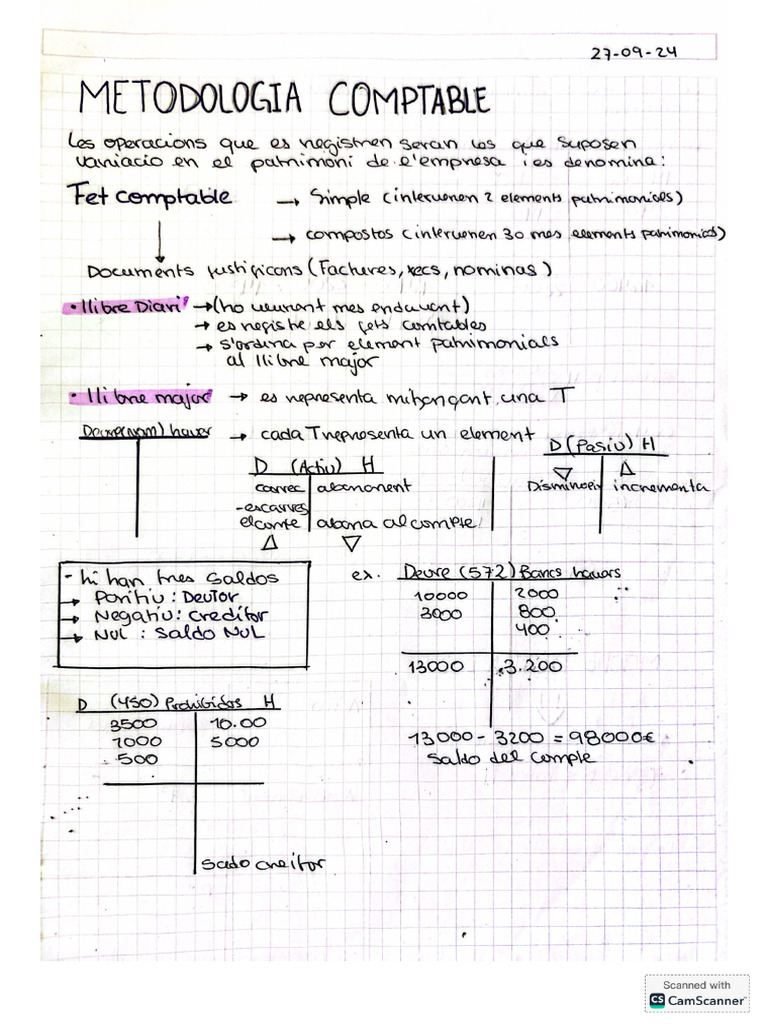 27-09-24
METODOLOGIA COMPTABLE
Les operacions que es registren seran les que suposen
variacio en el patrimoni de l'empresa i es denomina:
Fet comptable → Simple (intervenen 2 elements patrimonials)
→ compostos (intervenen 3 o mes elements patrimonials)
Documents justificons (Factures, xecs, nominas)
• llibre Diari → (ho veurant mes endavant)
→ es registre els fets comtables
→ s'ordina per element patrimonials
al llibre major
• llibre major → es representa mitjançant una T
Deure (nom) haver → cada T representa un element
D (Pasiu) H
▽ △
Disminoeix incrementa
D (Actiu) H
carrec abonament
-escarrec
el comte abona al compte
△ ▽
- hi han tres saldos
→ Positiu: Deutor
→ Negatiu: creditor
→ Nul : saldo NUL
ex. Deure (572) Bancs havers
10000 2000
3000 800
400
13000 3.200
13000 - 3200 = 98000€
saldo del compte
D (450) H
3500 10.00
1000 5000
500
sado creitor
Scanned with
CS CamScanner